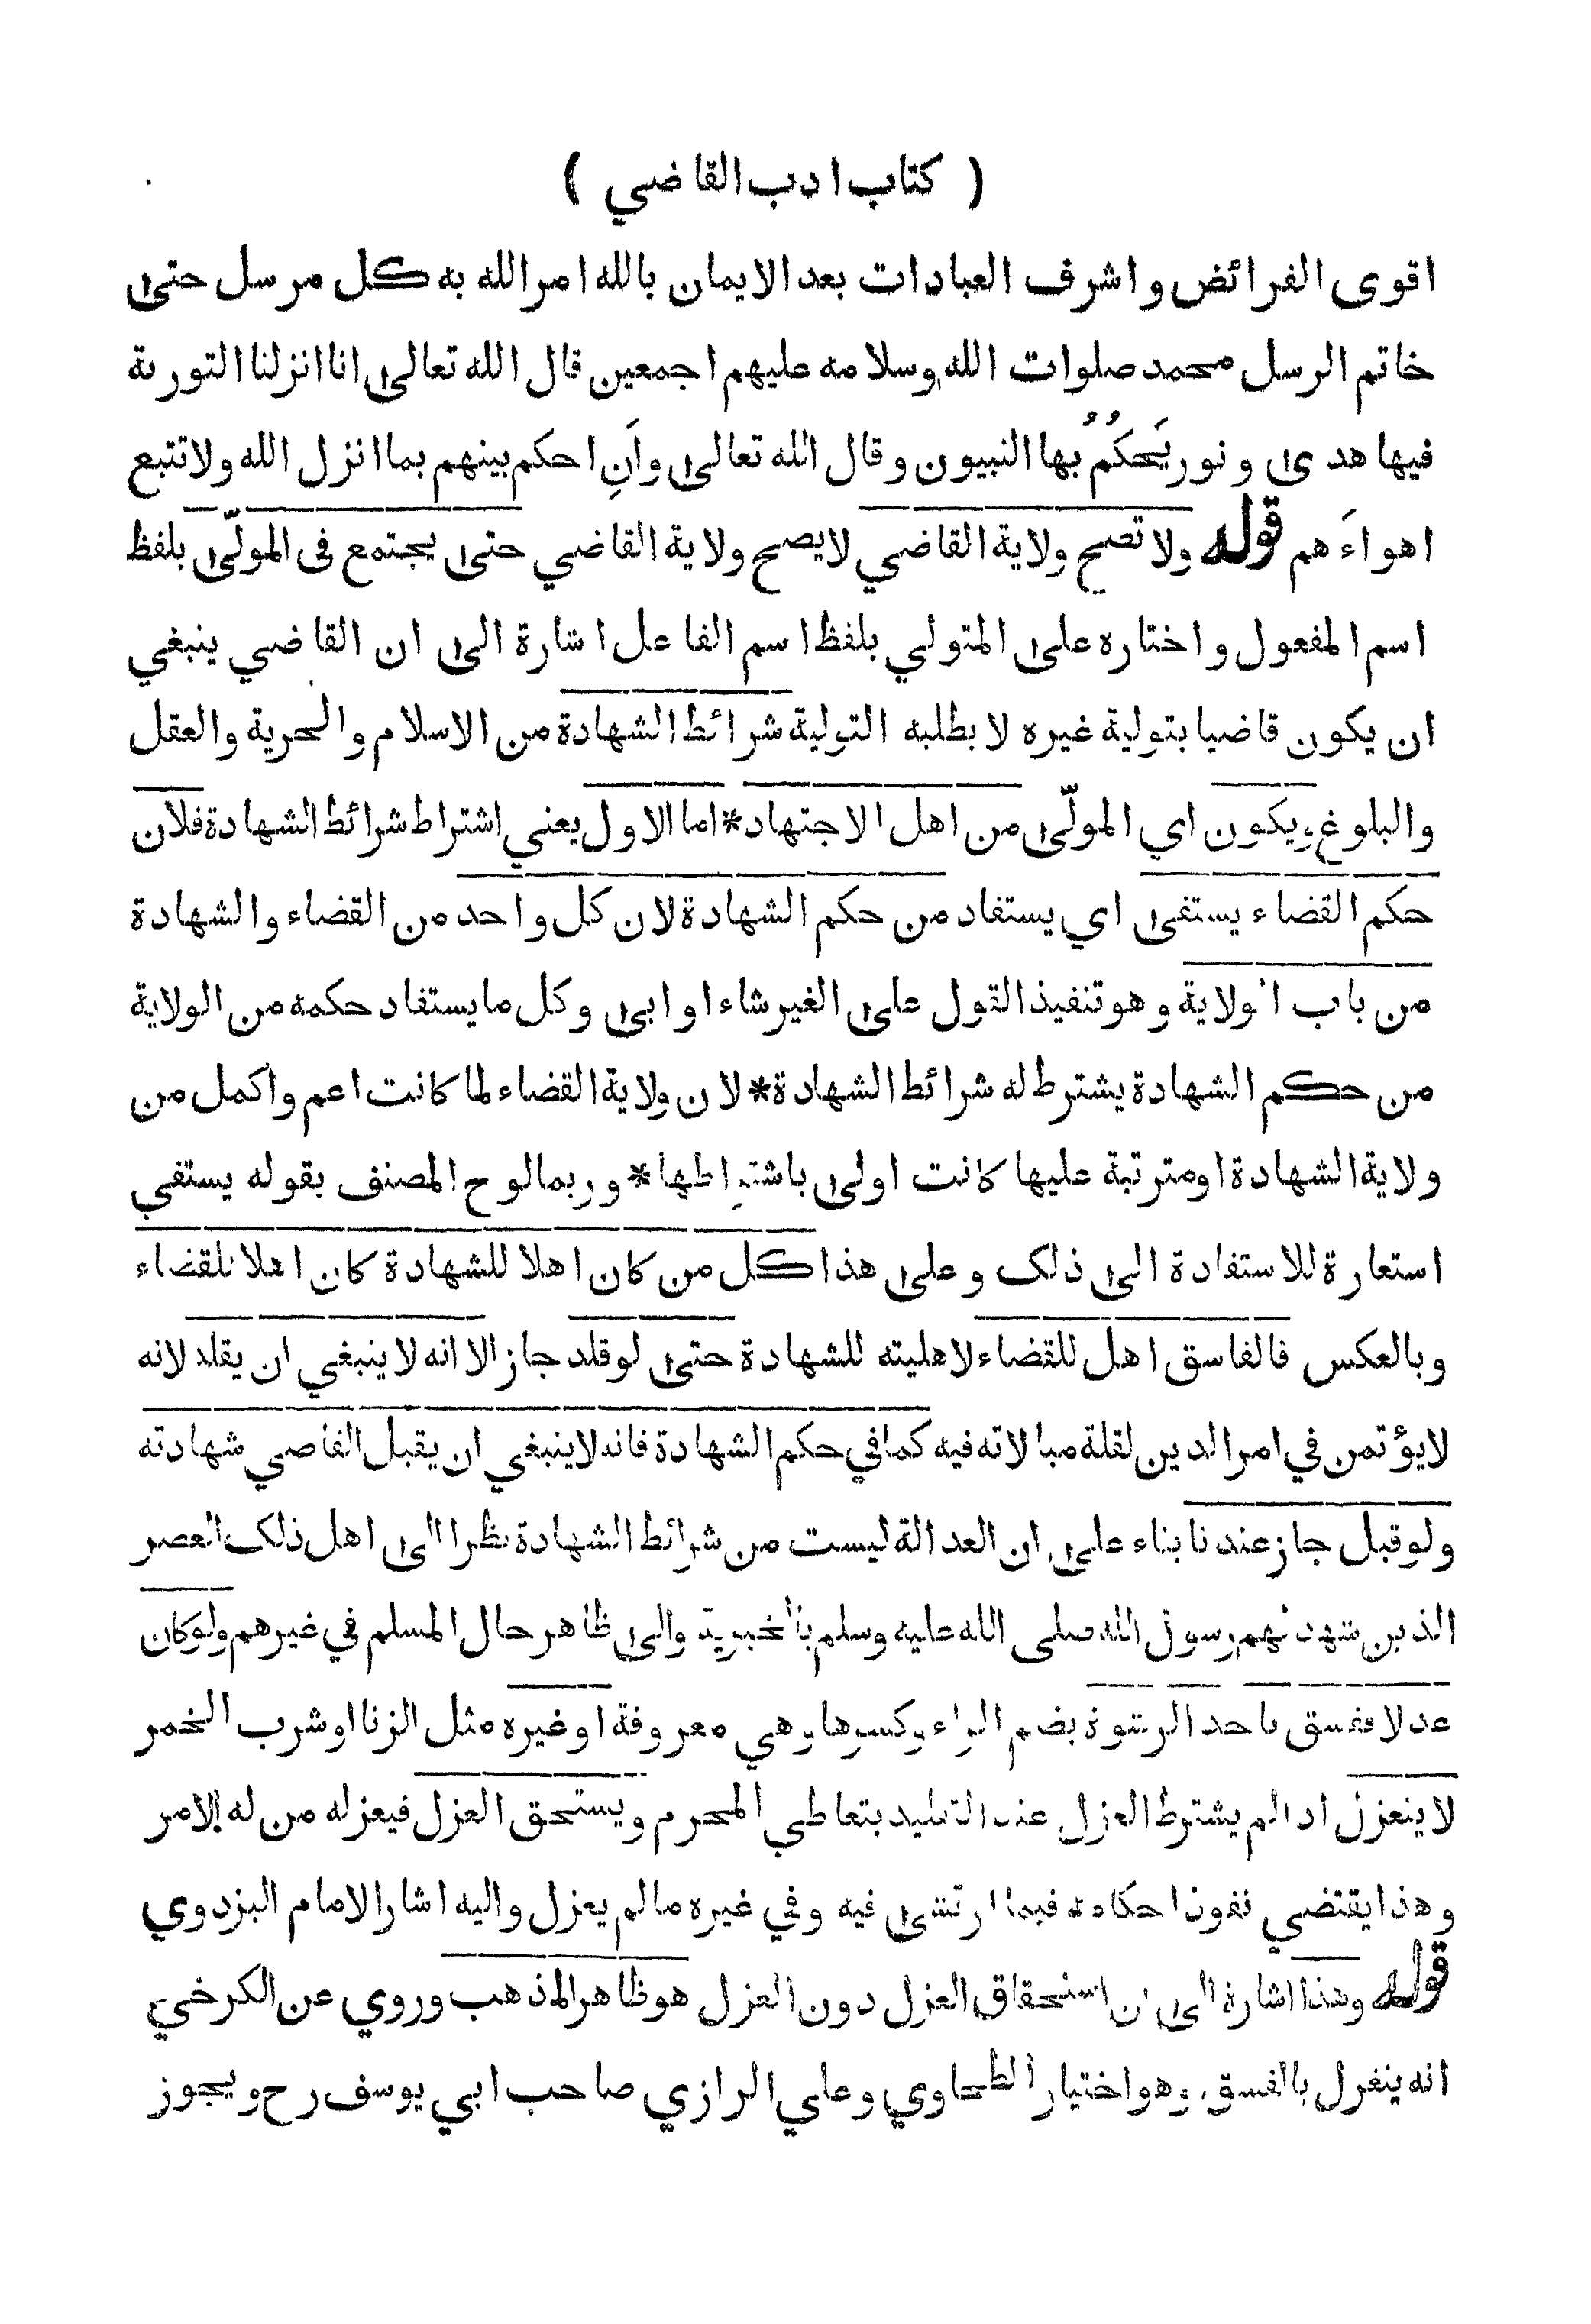 ( كتاب ادب القاضي )
اقوى الفرائض واشرف العبادات بعد الايمان بالله امر الله به كل مرسل حتى
خاتم الرسل محمد صلوات الله وسلامه عليهم اجمعين قال الله تعالى انا انزلنا التورىة
فيها هدى ونور يَحكُمُ بها النبيون وقال الله تعالى وأَنِ احكم بينهم بما انزل الله ولا تتبع
اهواءَهم قوله ولا تصح ولاية القاضي لا يصح ولاية القاضي حتى يجتمع فى المولّى بلفظ
اسم المفعول واختاره على المتولي بلفظ اسم الفاعل اشارة الى ان القاضي ينبغي
ان يكون قاضيا بتولية غيره لا بطلبه التولية شرائط الشهادة من الاسلام والحرية والعقل
والبلوغ ويكون اي المولّى من اهل الاجتهاد * اما الاول يعني اشتراط شرائط الشهادة فلان
حكم القضاء يستفى اي يستفاد من حكم الشهادة لان كل واحد من القضاء والشهادة
من باب الولاية وهو تنفيذ القول على الغير شاء او ابى وكل ما يستفاد حكمه من الولاية
من حكم الشهادة يشترط له شرائط الشهادة * لان ولاية القضاء لما كانت اعم واكمل من
ولاية الشهادة او مترتبة عليها كانت اولى باشتراطها * وربما لوح المصنف بقوله يستفي
استعارة للاستفادة الى ذلك وعلى هذا كل من كان اهلا للشهادة كان اهلا للقضاء
وبالعكس فالفاسق اهل للقضاء لاهليته للشهادة حتى لو قلد جاز الا انه لا ينبغي ان يقلد لانه
لا يؤتمن في امر الدين لقلة مبالاته فيه كما في حكم الشهادة فانه لا ينبغي ان يقبل القاضي شهادته
ولو قبل جاز عندنا بناء على ان العدالة ليست من شرائط الشهادة نظرا الى اهل ذلك العصر
الذين شهد لهم رسول الله صلى الله عليه وسلم بالخيرية والى ظاهر حال المسلم في غيرهم ولو كان
عدلا ففسق باخذ الرشوة بضم الراء وكسرها وهي معروفة او غيره مثل الزنا او شرب الخمر
لا ينعزل اذا لم يشترط العزل عند التقليد بتعاطي المحرم ويستحق العزل فيعزله من له الامر
وهذا يقتضي نفوذ احكامه فيما ارتشى فيه وفي غيره ما لم يعزل واليه اشار الامام البزدوي
قوله وهذا اشارة الى ان استحقاق العزل دون العزل هو ظاهر المذهب وروي عن الكرخي
انه ينعزل بالفسق وهو اختيار الطحاوي وعلي الرازي صاحب ابي يوسف رح ويجوز